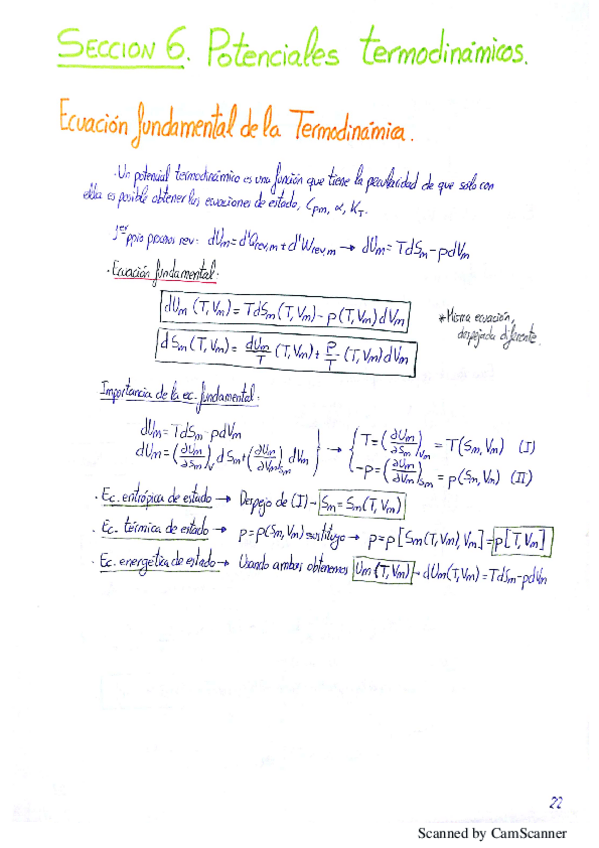 SECCION 6. Potenciales termodinámicos.
Ecuación fundamental de la Termodinámica.
·Un potencial termodinámico es una función que tiene la peculiaridad de que solo con
ella es posible obtener las ecuaciones de estado, Cpm, α, KT.
1er ppio proceso rev: dUm = d'Qrev,m + d'Wrev,m → dUm = TdSm - pdVm
· Ecuación fundamental:
dUm (T,Vm) = TdSm (T,Vm) - p (T,Vm) dVm
dSm (T,Vm) = dUm/T (T,Vm) + P/T (T,Vm) dVm
*Misma ecuación,
despejada diferente.
Importancia de la ec. fundamental:
dUm = TdSm - pdVm
dUm = (∂Um/∂Sm)V dSm + (∂Um/∂Vm)Sm dVm } → { T = (∂Um/∂Sm)Vm = T(Sm, Vm) (I)
-p = (∂Um/∂Vm)Sm = p(Sm, Vm) (II)
· Ec. entrópica de estado → Despejo de (I) → Sm = Sm (T, Vm)
· Ec. térmica de estado → p = p(Sm, Vm) sustituyo → p = p [Sm (T, Vm), Vm] = p [T, Vm]
· Ec. energética de estado → Usando ambas obtenemos Um (T, Vm) → dUm (T, Vm) = TdSm - pdVm
22
Scanned by CamScanner